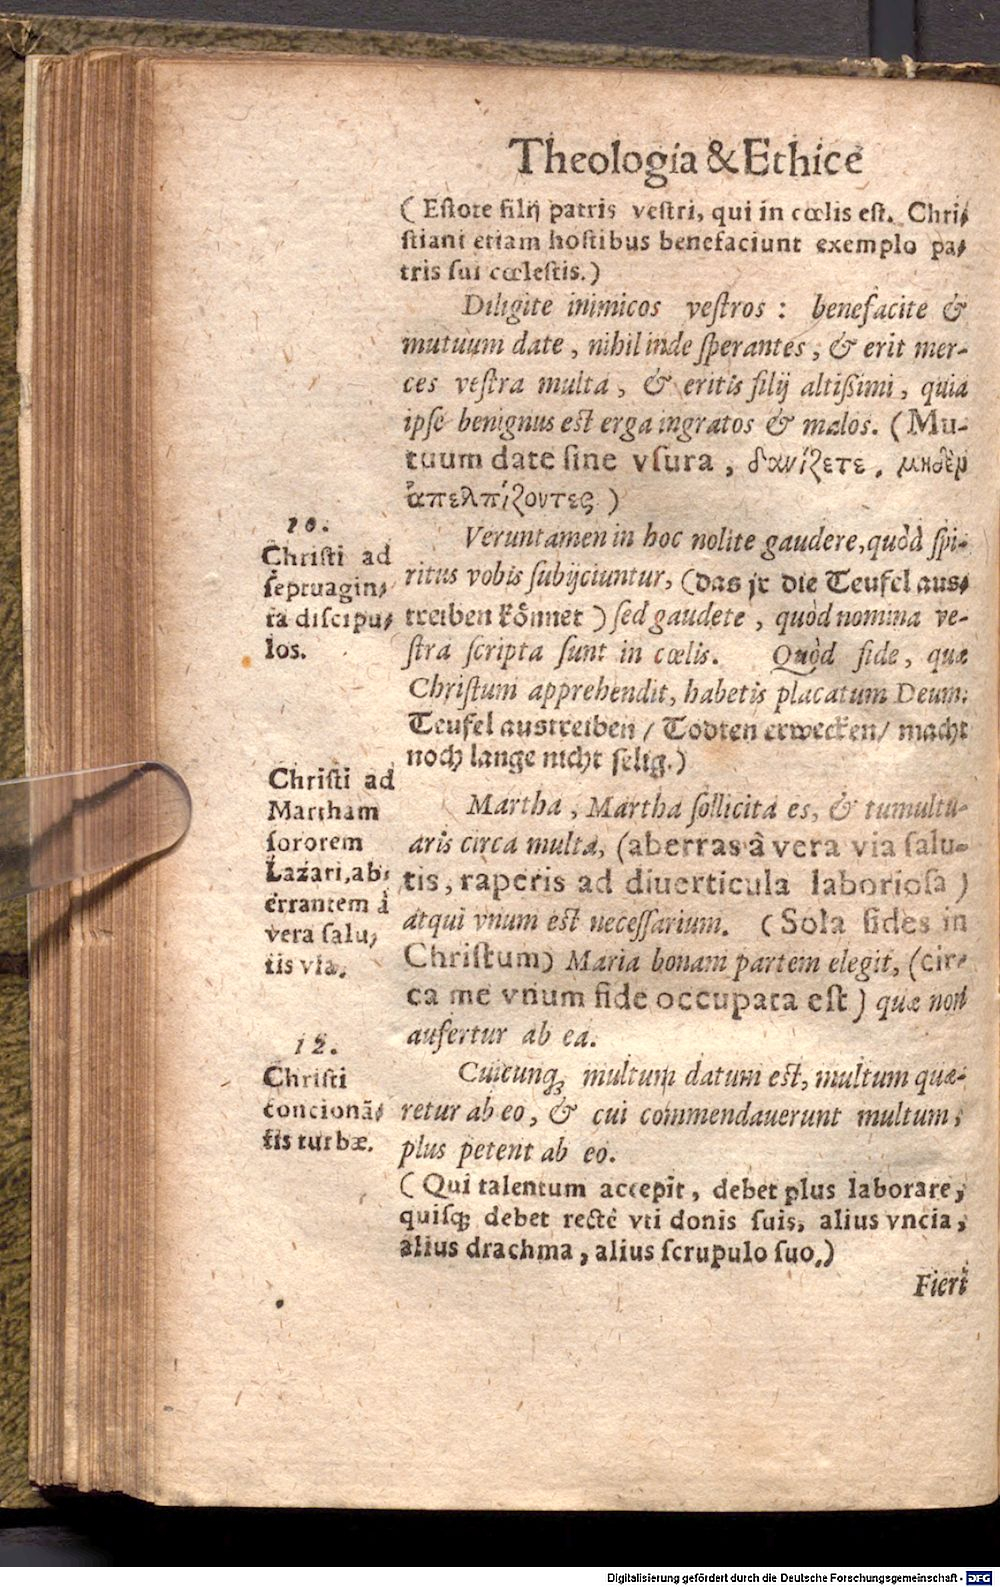 Theologia & Ethice
( Eſtote filij patris veſtri, qui in cœlis eſt. Chri⸗
ſtiani etiam hoſtibus benefaciunt exemplo pa⸗
tris ſui cœleſtis.)
Diligite inimicos veſtros : benefacite &
mutuum date , nihil inde ſperantes , & erit mer-
ces veſtra multa , & eritis filij altißimi , quia
ipſe benignus eſt erga ingratos & malos. ( Mu-
tuum date ſine vſura , δανίζετε , μηδὲν
ἀπελπίζοντες )
10.
Chriſti ad
ſeptuagin⸗
ta diſcipu⸗
los.
Veruntamen in hoc nolite gaudere, quòd ſpi-
ritus vobis ſubijciuntur, (das jr die Teufel aus⸗
treiben koͤnnet ) ſed gaudete , quòd nomina ve-
ſtra ſcripta ſunt in cœlis. Quòd fide , quæ
Chriſtum apprehendit, habetis placatum Deum:
Teufel austreiben / Todten erwecken/ macht
noch lange nicht ſelig.)
Chriſti ad
Martham
ſororem
Lazari, ab⸗
errantem à
vera ſalu⸗
tis via.
Martha , Martha ſollicita es, & tumultu-
aris circa multa, (aberras â vera via ſalu-
tis, raperis ad diuerticula laborioſa )
atqui vnum eſt neceſſarium. ( Sola fides in
Chriſtum) Maria bonam partem elegit, (cir-
ca me vnum fide occupata eſt ) quæ non
aufertur ab ea.
12.
Chriſti
concionā⸗
tis turbæ.
Cuicunq; multum datum eſt, multum quæ-
retur ab eo , & cui commendauerunt multum ,
plus petent ab eo.
( Qui talentum accepit , debet plus laborare,
quiſq; debet rectè vti donis ſuis, alius vncia ,
alius drachma , alius ſcrupulo ſuo.)
Fieri
Digitalisierung gefördert durch die Deutsche Forschungsgemeinschaft - DFG